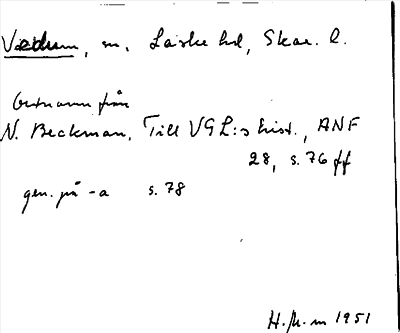 Vedum, sn, Laske hd, Skar. l.
Ortnamn från
N. Beckman, Till VGL:s hist., ANF
28, s. 76 ff
gen. på -a s. 78
H. M-m 1951